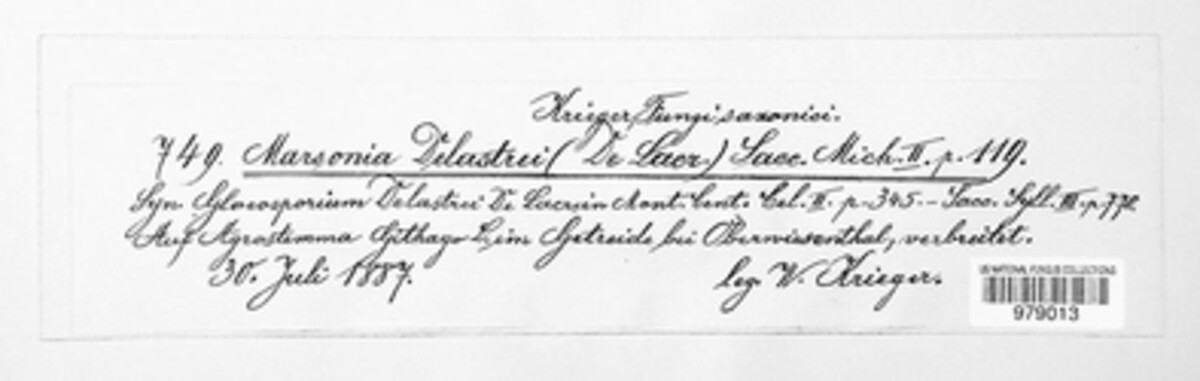 Krieger, Fungi saxonici.
749. Marsonia Delastrei (De Lacr.) Sacc. Mich. II. p. 119.
Syn. Gloeosporium Delastrei De Lacr. in Mont. Cent. Cel. II. p. 345. - Sacc. Syll. III. p. 772
Auf Agrostemma Githago L. im Getreide bei Oberwiesenthal, verbreitet.
30. Juli 1887.
leg. W. Krieger.
US NATIONAL FUNGUS COLLECTIONS
979013